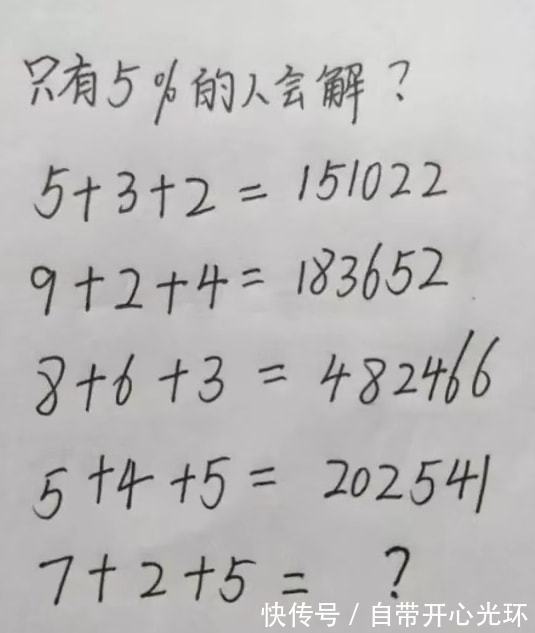 只有5%的人会解?
5+3+2=151022
9+2+4=183652
8+6+3=482466
5+4+5=202541
7+2+5=?
快传号/自带开心光环